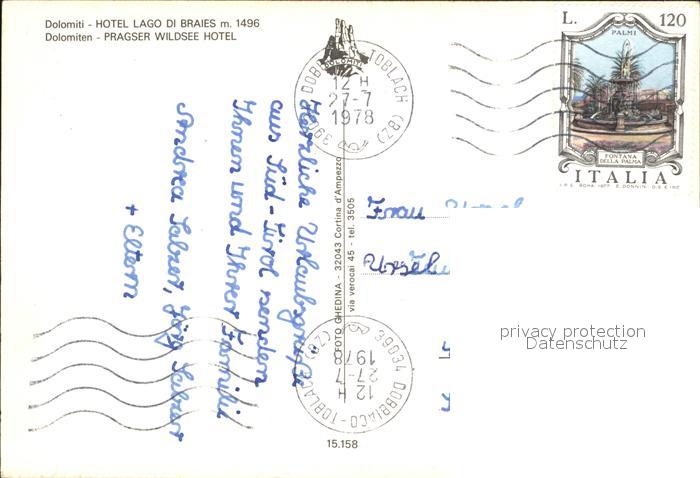 Dolomiti - HOTEL LAGO DI BRAIES m. 1496
Dolomiten - PRAGSER WILDSEE HOTEL
DOLOMITI
39034 DOBBIACO-TOBLACH (BZ)
12 H
27-7
1978
L. 120
PALMI
FONTANA
DELLA PALMA
ITALIA
I.P.S. ROMA 1977 E. DONNINI DIS. E INC.
Herzliche Urlaubsgrüße
aus Süd-Tirol senden
Ihnen und Ihrer Familie
Andrea Salzer, Jörg Salzer
+ Eltern
FOTO GHEDINA - 32043 Cortina d'Ampezzo
via verocai 45 - tel. 3505
Frau
39034 DOBBIACO-TOBLACH (BZ)
12 H
27-7
1978
15.158
privacy protection
Datenschutz